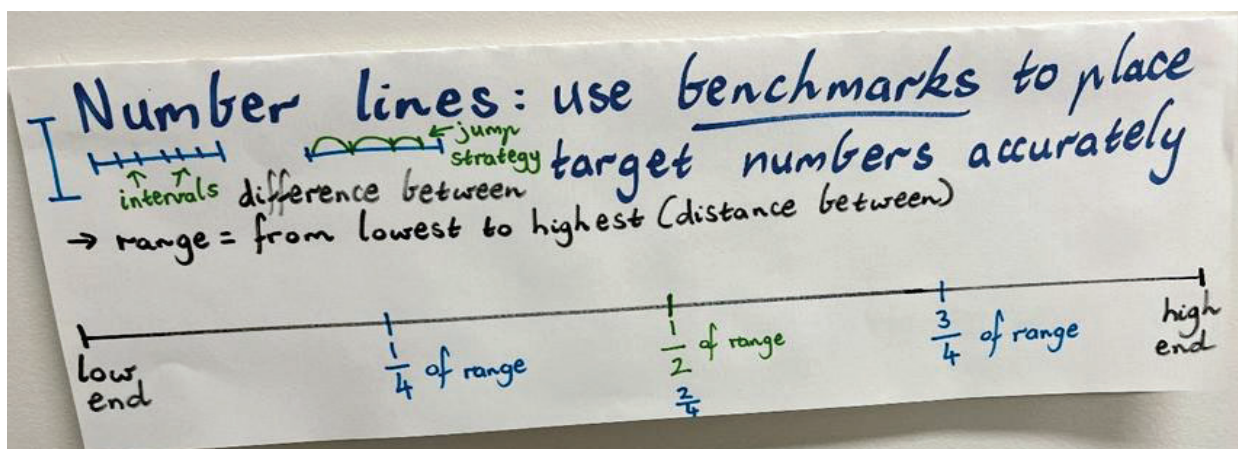 Number lines: use benchmarks to place
target numbers accurately
jump
strategy
intervals
difference between
→ range = from lowest to highest (distance between)
low
end
1/4 of range
1/2 of range
2/4
3/4 of range
high
end